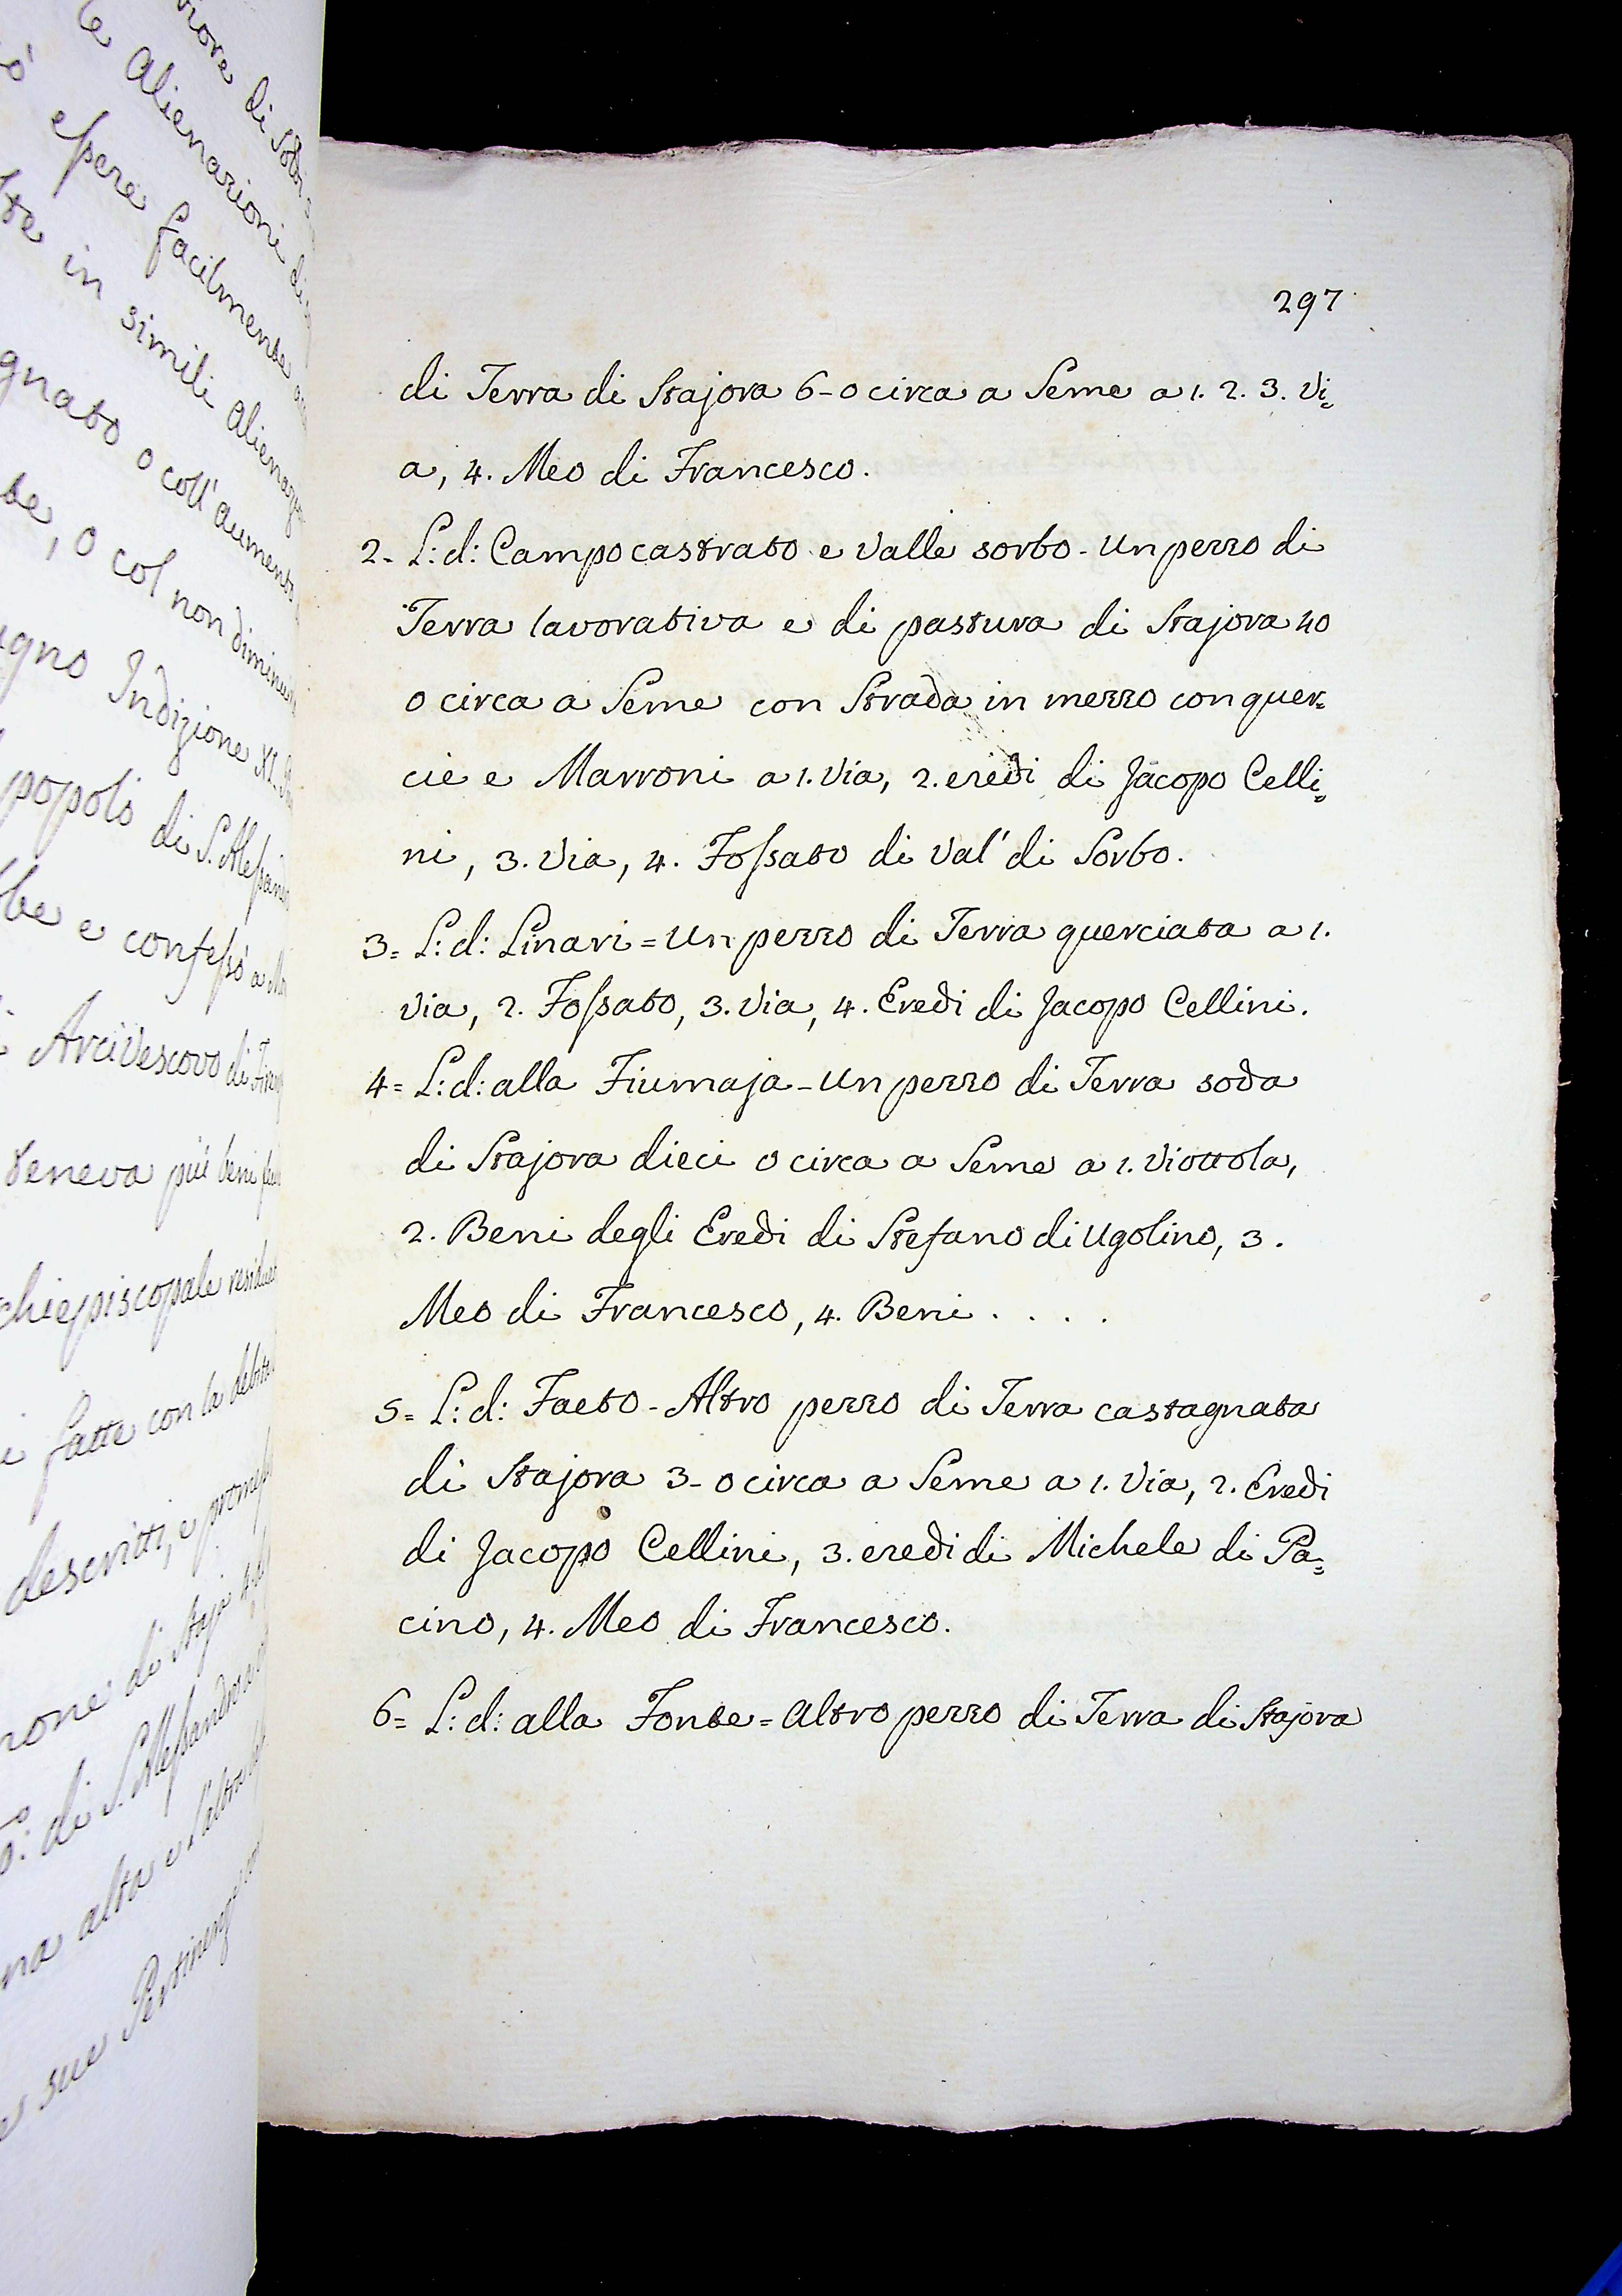 niore di
e Alienazioni di
ò essere facilmente
te in simili Alienaz
gnato o coll'aumento
te, o col non diminui
ugno Indizione XI.
popolo di S. Alessand
be e confessò a
Arcivescovo di
teneva più beni
chiepiscopale
i fatte con la debita
descritti, e
none di Staja
di S. Alessandro
na alta e l'altra
sue Pertinenz
297
di Terra di Stajora 6 - o circa a Seme a 1. 2. 3. Vi=
a, 4. Meo di Francesco.
2 - L: d: Campocastrato e Valle sorbo - Un pezzo di
Terra lavorativa e di pastura di Stajora 40
o circa a Seme con Strada in mezzo con quer=
cie e Marroni a 1. Via, 2. eredi di Jacopo Celli=
ni, 3. Via, 4. Fossato di Val' di Sorbo.
3 = L: d: Linari = Un pezzo di Terra querciata a 1.
Via, 2. Fossato, 3. Via, 4. Eredi di Jacopo Cellini.
4 = L: d: alla Fiumaja - Un pezzo di Terra soda
di Stajora dieci o circa a Seme a 1. Viottola,
2. Beni degli Eredi di Stefano di Ugolino, 3.
Meo di Francesco, 4. Beni . . . .
5 = L: d: Faeto - Altro pezzo di Terra castagnata
di Stajora 3 - o circa a Seme a 1. Via, 2. Eredi
di Jacopo Cellini, 3. eredi di Michele di Pa=
cino, 4. Meo di Francesco.
6 = L: d: alla Fonte = Altro pezzo di Terra di Stajora